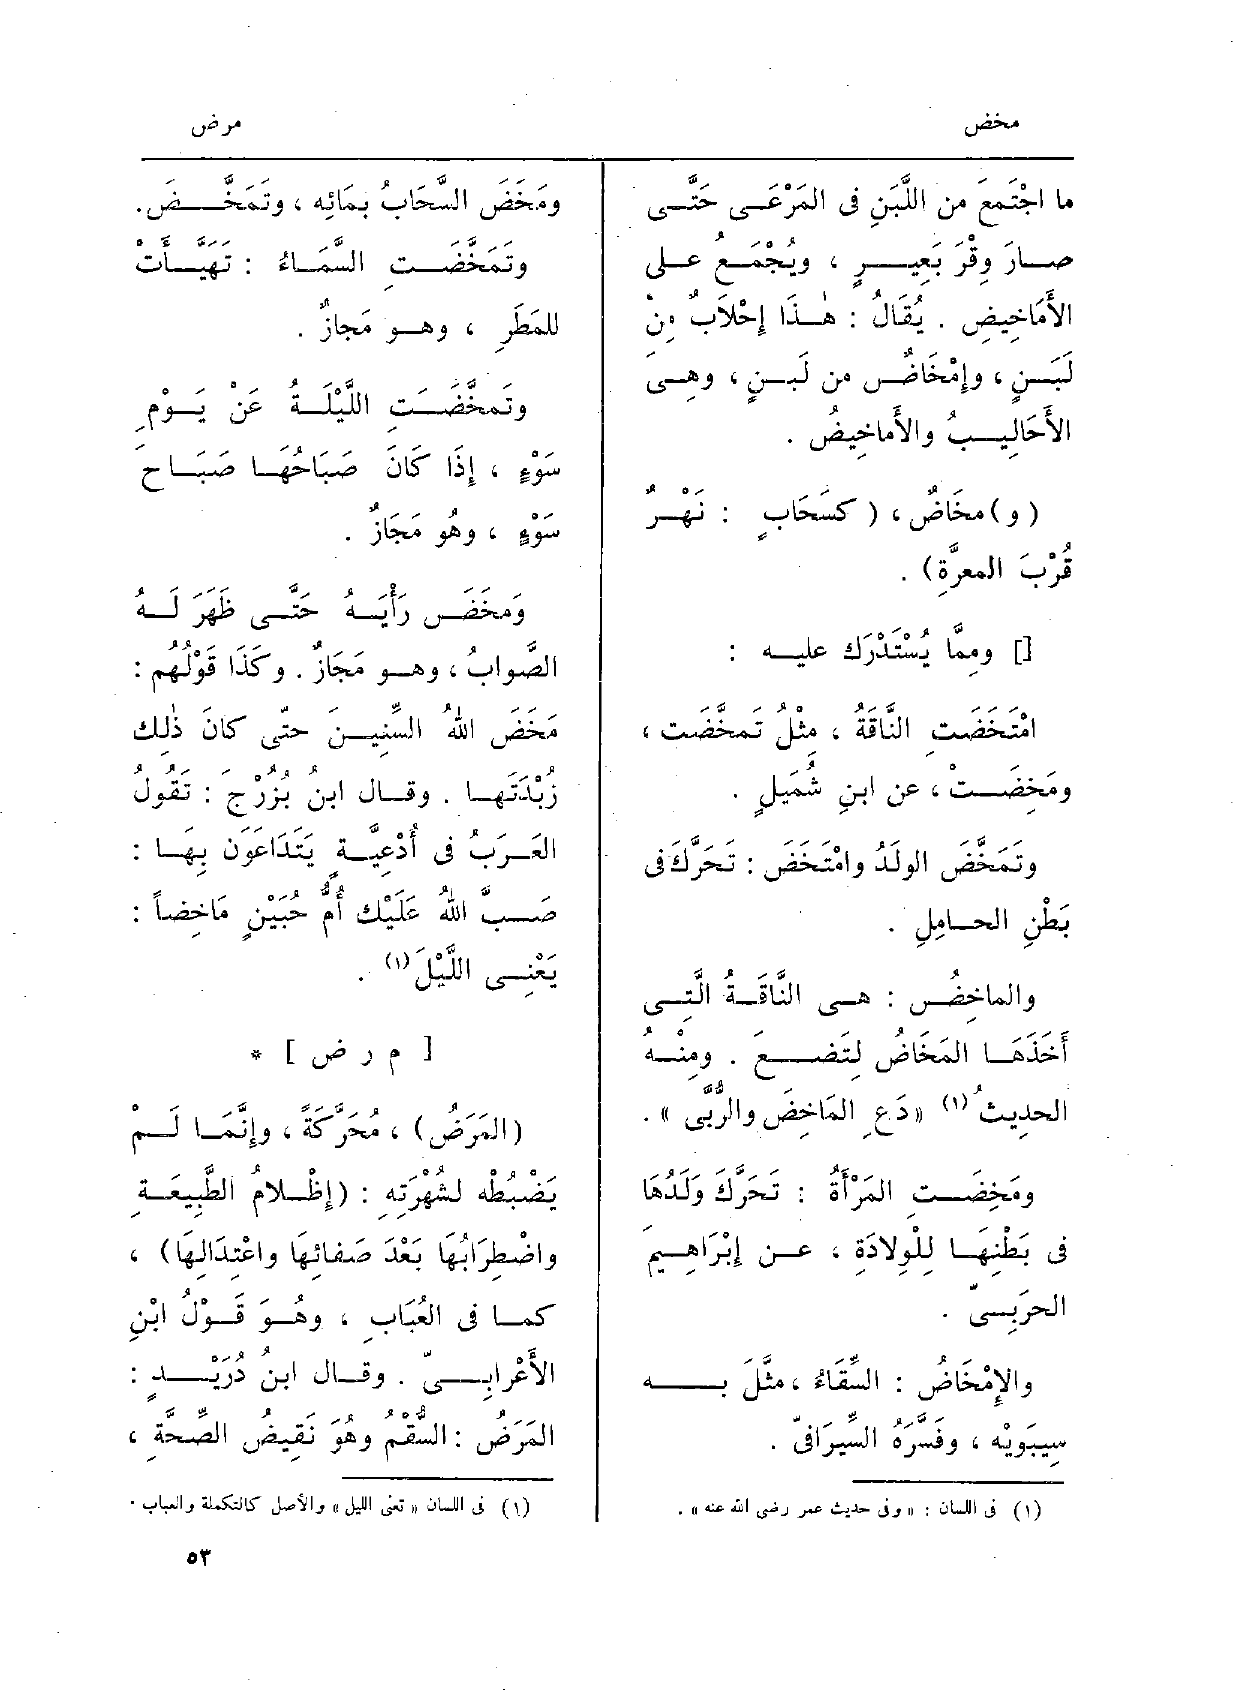 مخض
مرض
ما اجْتَمعَ من اللَّبَنِ فى المَرْعَى حَتَّى
صارَ وِقْرَ بَعِيرٍ ، ويُجْمَعُ على
الأَمَاخِيضِ . يُقَالُ : هٰذَا إِحْلَابٌ مِنْ
لَبَنٍ ، وإِمْخَاضٌ من لَبنٍ ، وهى
الأَحَالِيبُ والأَماخِيضُ .
( و ) مخَاضٌ ، ( كسَحَابٍ : نَهْرٌ
قُرْبَ المعرَّةِ) .
[] ومِمَّا يُسْتَدْرَك عليه :
امْتَخَضَتِ الناقَةُ ، مِثْلُ تَمخَّضَت ،
ومَخِضَتْ ، عن ابنِ شُمَيلٍ .
وتَمَخَّضَ الولَدُ وامْتَخَضَ : تَحَرَّكَ فى
بَطْنِ الحامِلِ .
والماخِضُ : هى النَّاقَةُ الَّتِى
أَخَذَهَا المَخَاضُ لِتَضَعَ . ومِنْهُ
الحدِيثُ (١) «دَعِ المَاخِضَ والرُّبَّى » .
ومَخِضَتِ المَرْأَةُ : تَحَرَّكَ وَلَدُهَا
فى بَطْنِهَا لِلْوِلَادَةِ ، عن إِبْرَاهِيمَ
الحَرْبِىّ .
والإِمْخَاضُ : السِّقَاءُ ، مثَّلَ بِه
سِيبَوَيْه ، وفَسَّرَهُ السِّيرَافىّ .
(١) فى اللسان : « وفى حديث عمر رضى الله عنه » .
ومَخَضَ السَّحَابُ بِمَائِه ، وتَمَخَّضَ.
وتَمَخَّضَتِ السَّمَاءُ : تَهَيَّأَتْ
للمَطَرِ ، وهو مَجازٌ .
وتَمخَّضَتِ اللَّيْلَةُ عَنْ يَوْمِ
سَوْءٍ ، إِذَا كَانَ صَبَاحُهَا صَبَاحَ
سَوْءٍ ، وهُو مَجَازٌ .
ومَخَضَ رَأْيَهُ حَتَّى ظَهَرَ لَهُ
الصَّوابُ ، وهو مَجَازٌ . وكَذَا قَوْلُهُم :
مَخَضَ اللهُ السِّنِينَ حتّى كانَ ذٰلِك
زُبْدَتَهَا . وقال ابنُ بُزُرْجَ : تَقُولُ
العَرَبُ فى أَدْعِيَّةٍ يَتَدَاعَوْنَ بِهَا :
صَبَّ اللهُ عَلَيْك أُمَّ حُبَيْنٍ مَاخِضاً :
يَعْنِى اللَّيْلَ (١) .
[ م ر ض ] *
(المَرَضُ) ، مُحَرَّكَةً ، وإِنَّمَا لَمْ
يَضْبُطْه لشُهْرَتِه : (إِظْلامُ الطَّبِيعَةِ
واضْطِرَابُهَا بَعْدَ صَفائِهَا واعْتِدَالِهَا) ،
كما فى العُبَابِ ، وهُوَ قَوْلُ ابْنِ
الأَعْرابِىّ . وقال ابنُ دُرَيْدٍ :
المَرَضُ : السُّقْمُ وهُوَ نَقِيضُ الصِّحَّةِ ،
(١) فى اللسان « تعنى الليل » والأصل كالتكملة والعباب .
٥٣